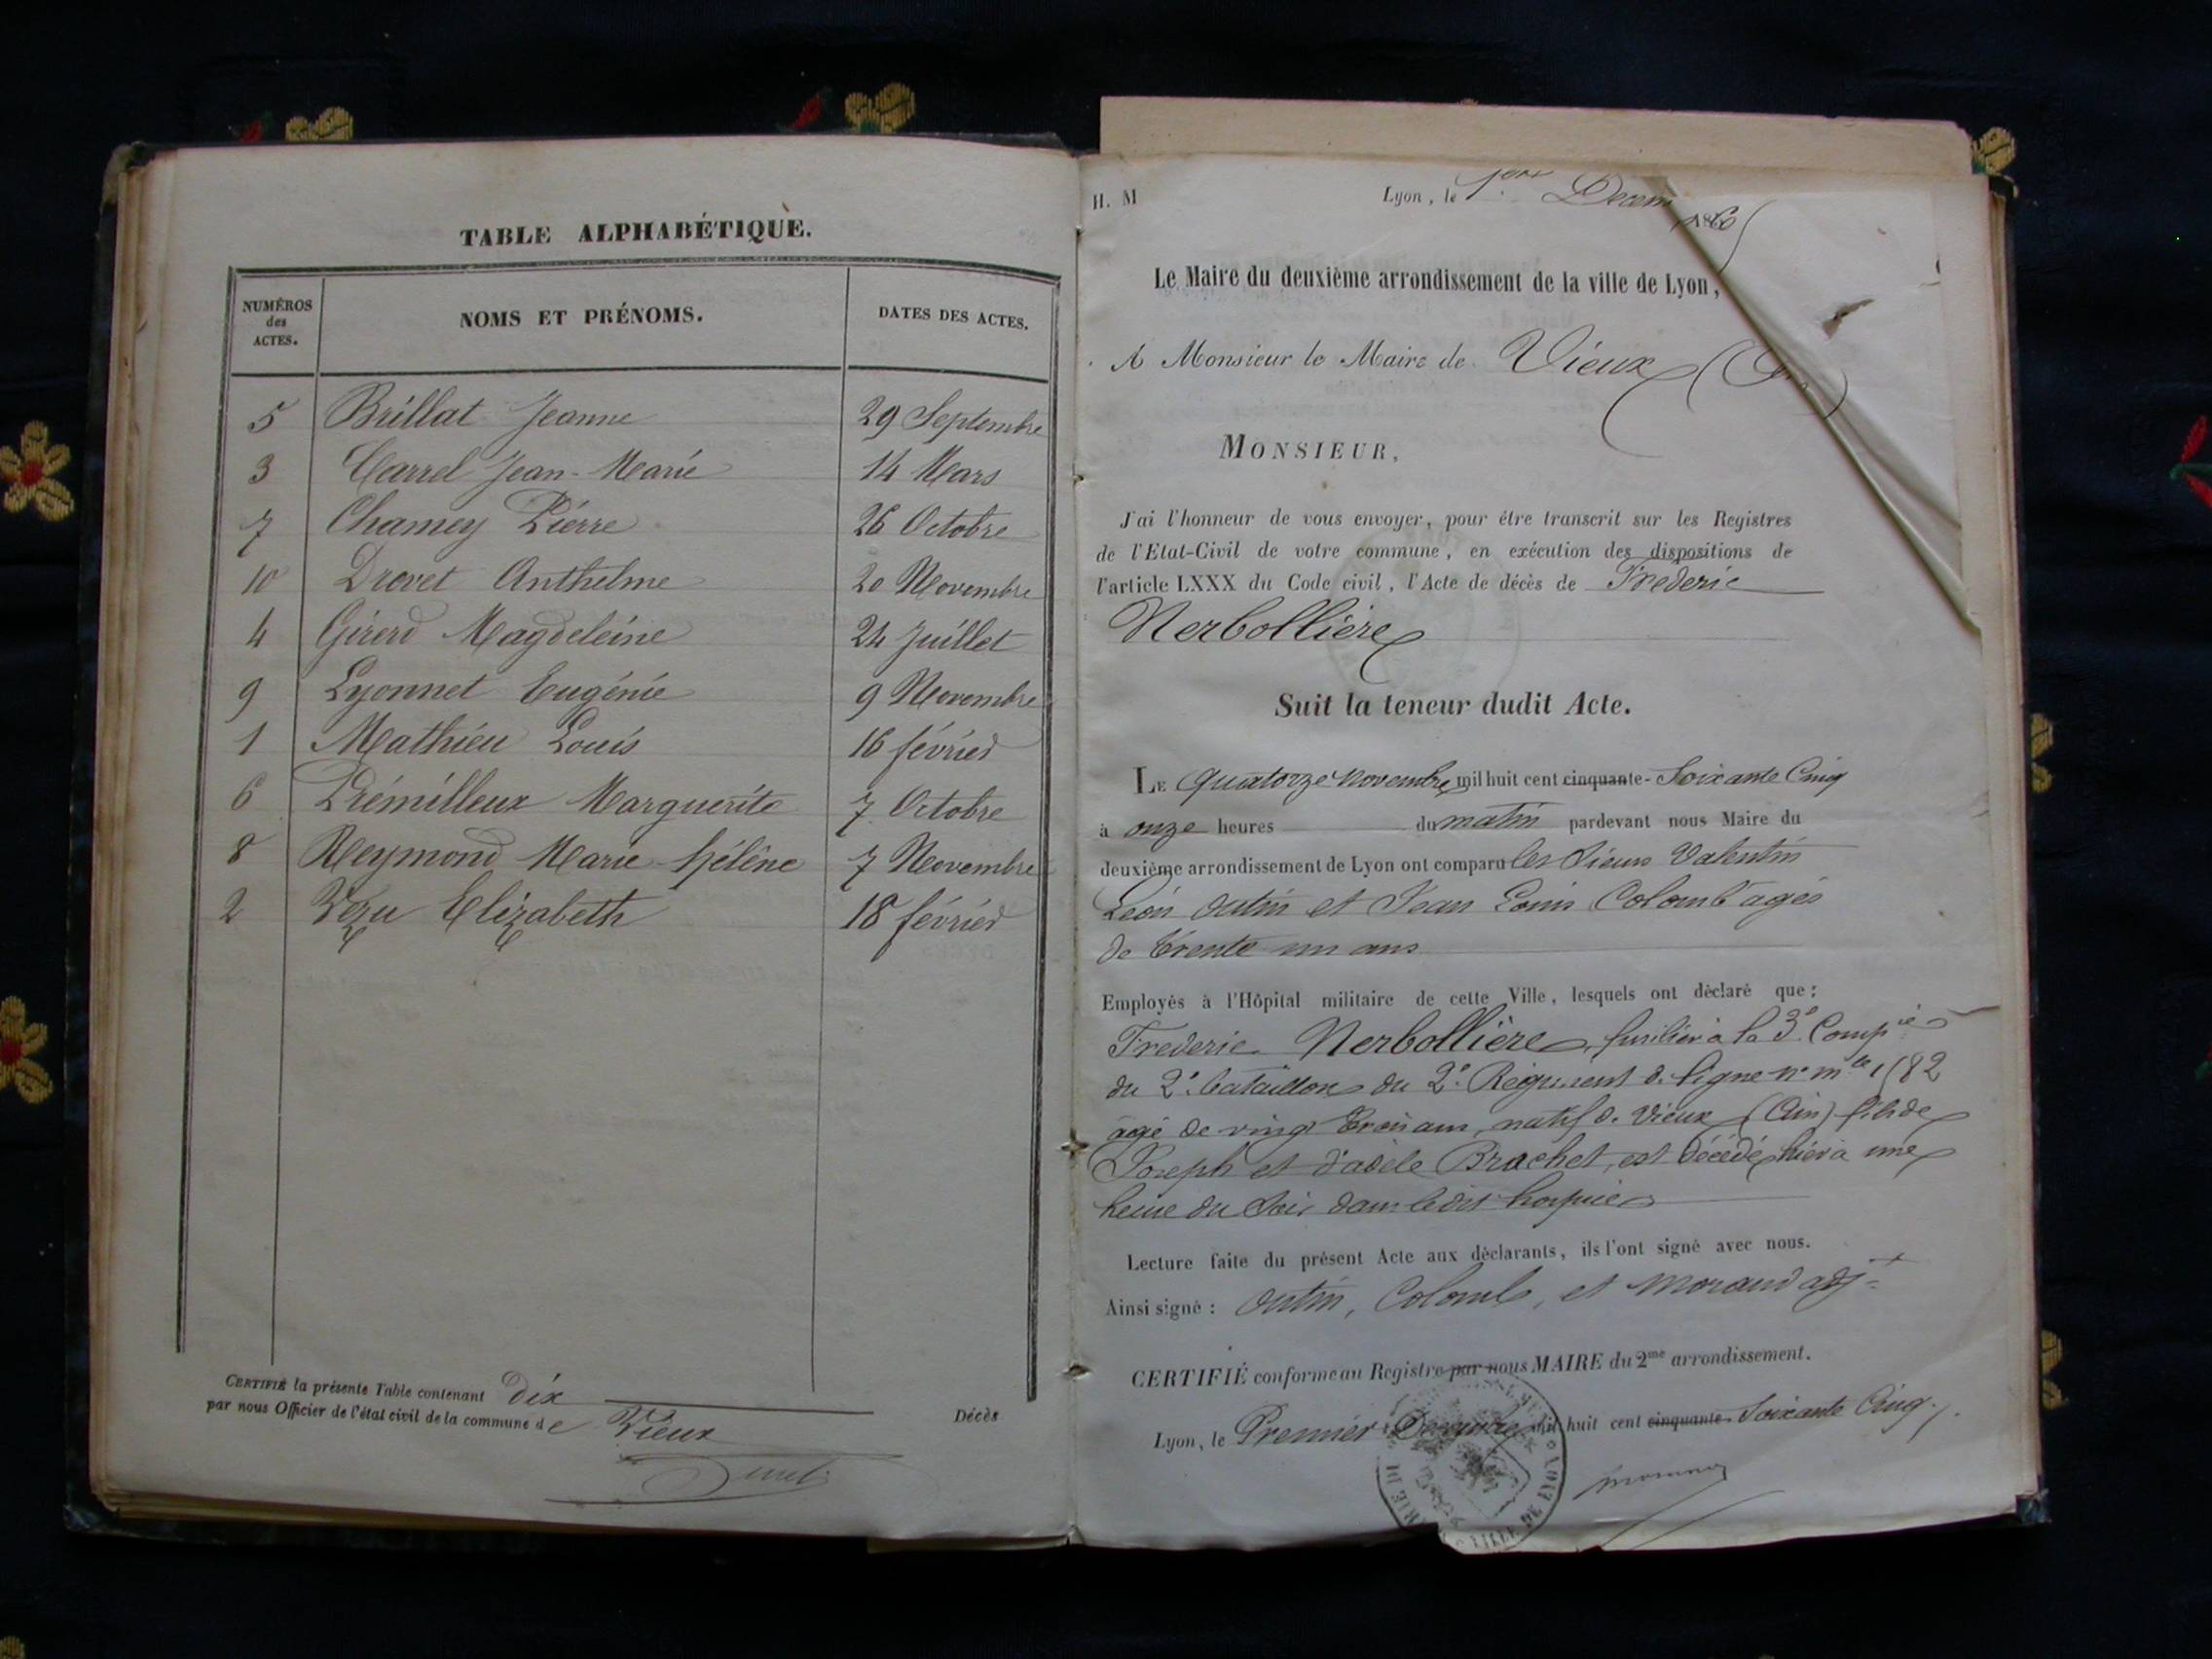 TABLE ALPHABÉTIQUE.
NUMÉROS des ACTES. NOMS ET PRÉNOMS. DATES DES ACTES.
5 Brillat Jeanne 29 Septembre
3 Carrel Jean-Marie 14 Mars
7 Chamey Pierre 26 Octobre
10 Drevet Anthelme 20 Novembre
4 Girerd Magdeleine 24 Juillet
9 Lyonnet Eugénie 9 Novembre
1 Mathieu Louis 16 février
6 Prémilleux Marguerite 7 Octobre
8 Reymond Marie-hélène 7 Novembre
2 Vezu Elizabeth 18 février
CERTIFIÉ la présente Table contenant dix
par nous Officier de l'état civil de la commune de Vieux
Décès
H. M
Lyon, le 1er Decem 1865
Le Maire du deuxième arrondissement de la ville de Lyon,
A Monsieur le Maire de Vieux
MONSIEUR,
J'ai l'honneur de vous envoyer, pour être transcrit sur les Registres
de l'Etat-Civil de votre commune, en exécution des dispositions de
l'article LXXX du Code civil, l'Acte de décès de Frederic
Nerbollière
Suit la teneur dudit Acte.
LE quatorze novembre mil huit cent cinquante- Soixante Cinq
à onze heures du matin pardevant nous Maire du
deuxième arrondissement de Lyon ont comparu les Sieurs Valentin
Léon Outin et Jean Louis Colomb agés
de trente un ans
Employés à l'Hôpital militaire de cette Ville, lesquels ont déclaré que:
Frederic Nerbollière, fusilier à la 3e Compie
du 2e bataillon du 2e Régiment de ligne n° mle
agé de vingt trois ans, natif de Vieux (Ain) fils de
Joseph et d'adèle Brachet, est décédé hier à une
heure du Soir dans ledit hospice
Lecture faite du présent Acte aux déclarants, ils l'ont signé avec nous.
Ainsi signé: Outin, Colomb, et Morand adjt
CERTIFIÉ conforme au Registre par nous MAIRE du 2me arrondissement.
Lyon, le Premier Decembre mil huit cent cinquante Soixante Cinq